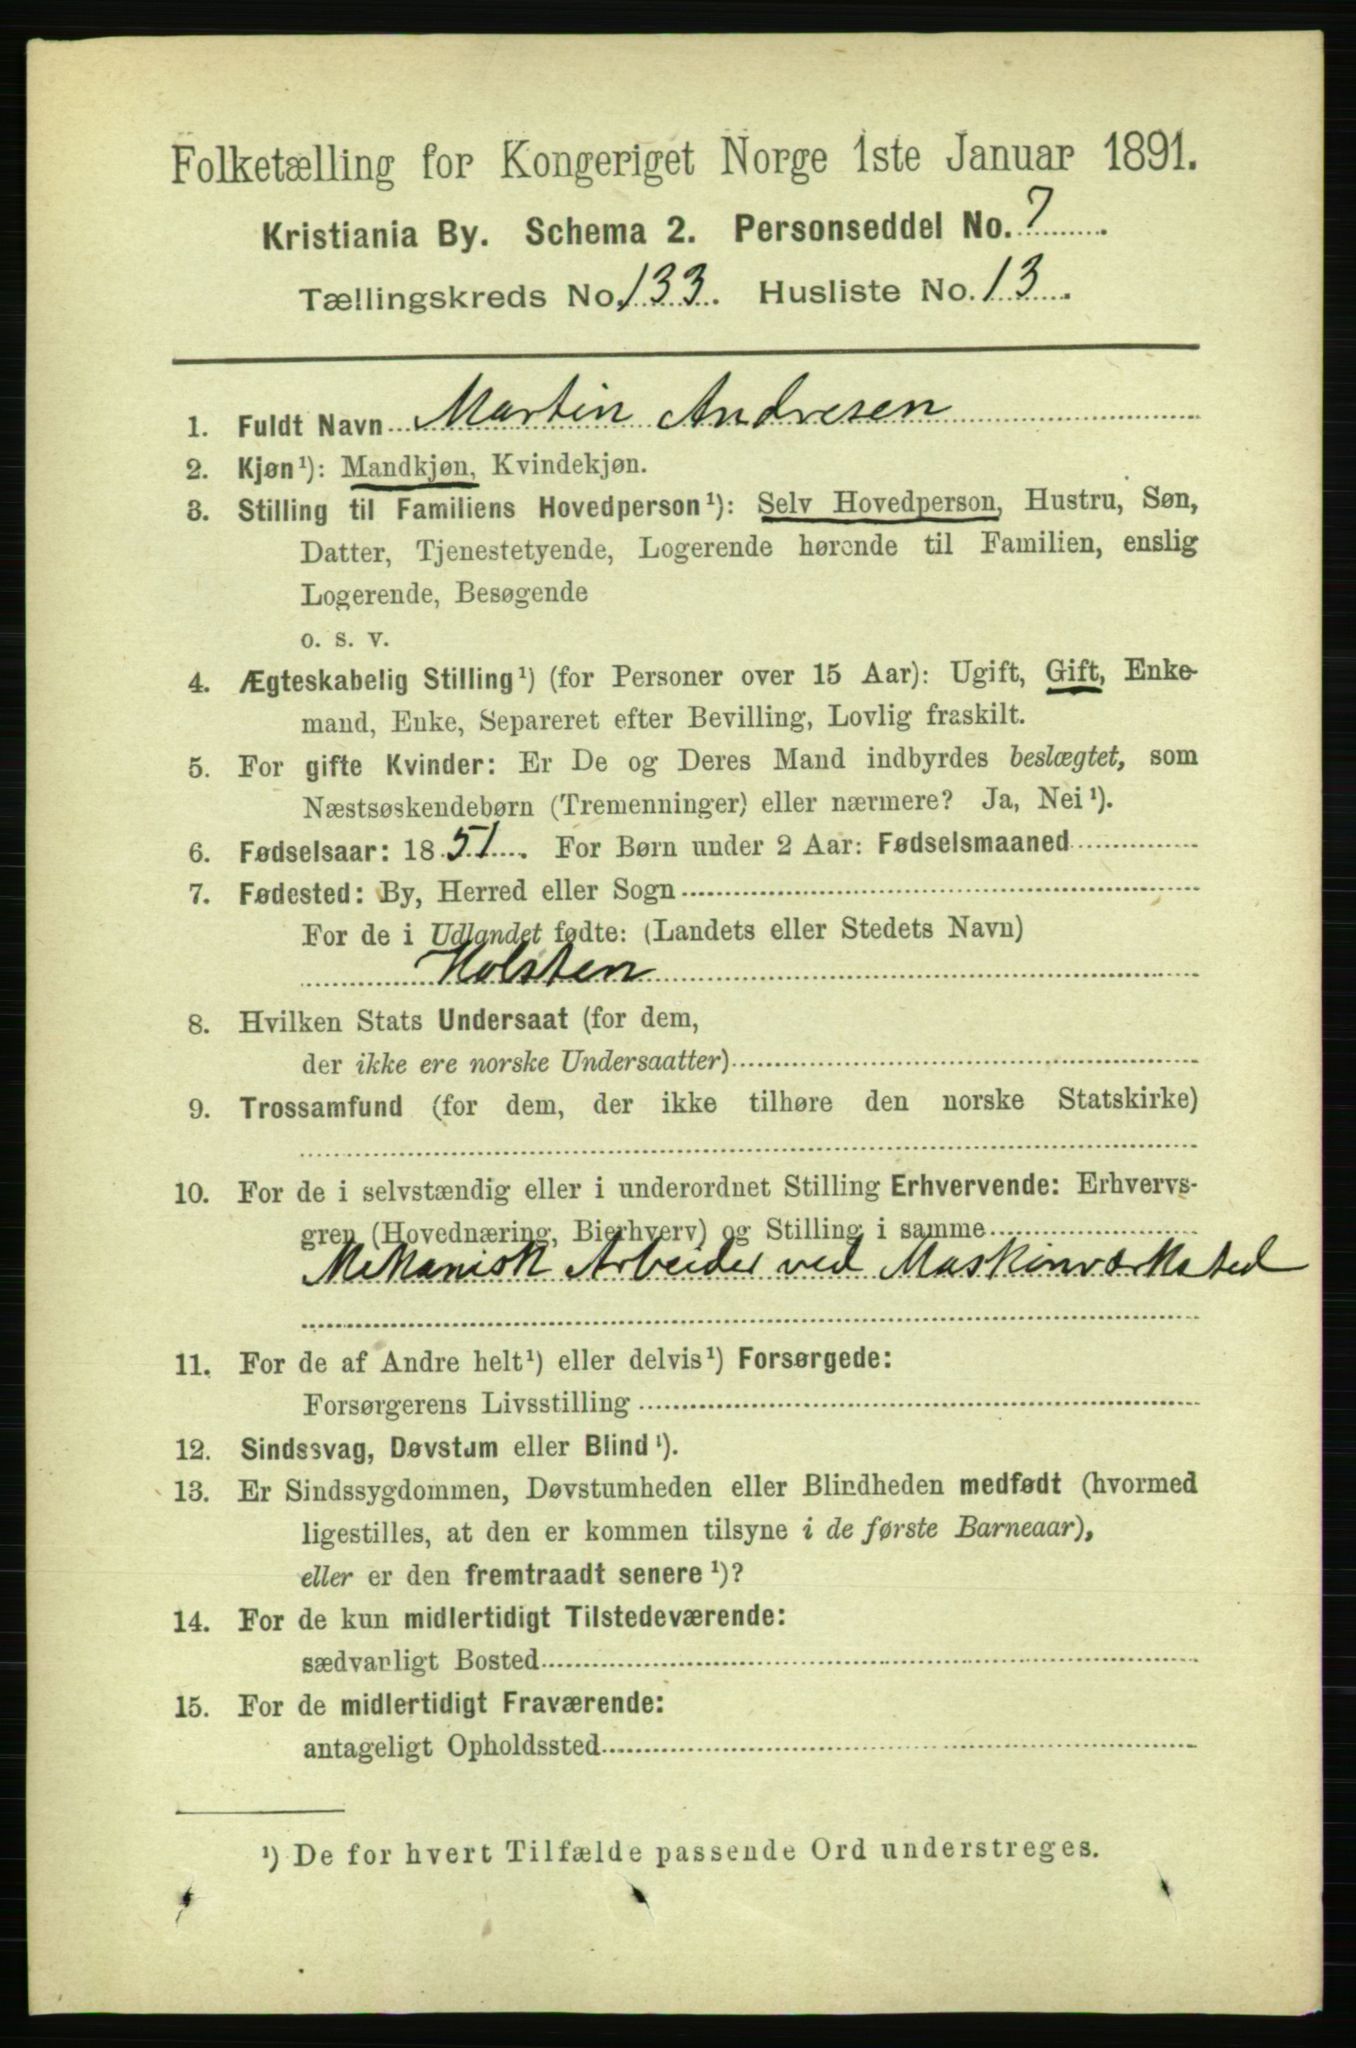 Folketælling for Kongeriget Norge 1ste Januar 1891.
Kristiania By. Schema 2. Personseddel No. 7
Tællingskreds No. 133. Husliste No. 13.
1. Fuldt Navn Martin Andresen
2. Kjøn¹): Mandkjøn, Kvindekjøn.
3. Stilling til Familiens Hovedperson¹): Selv Hovedperson, Hustru, Søn,
Datter, Tjenestetyende, Logerende hørende til Familien, enslig
Logerende, Besøgende
o. s. v.
4. Ægteskabelig Stilling¹) (for Personer over 15 Aar): Ugift, Gift, Enke-
mand, Enke, Separeret efter Bevilling, Lovlig fraskilt.
5. For gifte Kvinder: Er De og Deres Mand indbyrdes beslægtet, som
Næstsøskendebørn (Tremenninger) eller nærmere? Ja, Nei¹).
6. Fødselsaar: 1851. For Børn under 2 Aar: Fødselsmaaned
7. Fødested: By, Herred eller Sogn
For de i Udlandet fødte: (Landets eller Stedets Navn)
Holsten
8. Hvilken Stats Undersaat (for dem,
der ikke ere norske Undersaatter)
9. Trossamfund (for dem, der ikke tilhøre den norske Statskirke)
10. For de i selvstændig eller i underordnet Stilling Erhvervende: Erhvervs-
gren (Hovednæring, Bierhverv) og Stilling i samme
Mekanisk Arbeider ved Maskinværksted
11. For de af Andre helt¹) eller delvis¹) Forsørgede:
Forsørgerens Livsstilling
12. Sindssvag, Døvstum eller Blind¹).
13. Er Sindssygdommen, Døvstumheden eller Blindheden medfødt (hvormed
ligestilles, at den er kommen tilsyne i de første Barneaar),
eller er den fremtraadt senere¹)?
14. For de kun midlertidigt Tilstedeværende:
sædvanligt Bosted
15. For de midlertidigt Fraværende:
antageligt Opholdssted
¹) De for hvert Tilfælde passende Ord understreges.